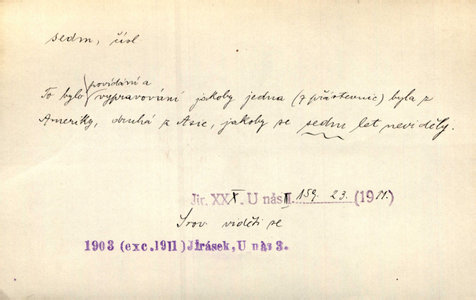 sedm, čísl
povídání a
To bylo vypravování jakoby jedna (z přástevnic) byla z
Ameriky, druhá z Asie, jakoby se sedm let neviděly.
Jir. XXX. U nás II. 159. 23. (1911.)
Srov. viděti se
1903 (exc. 1911) Jirásek, U nás 3.